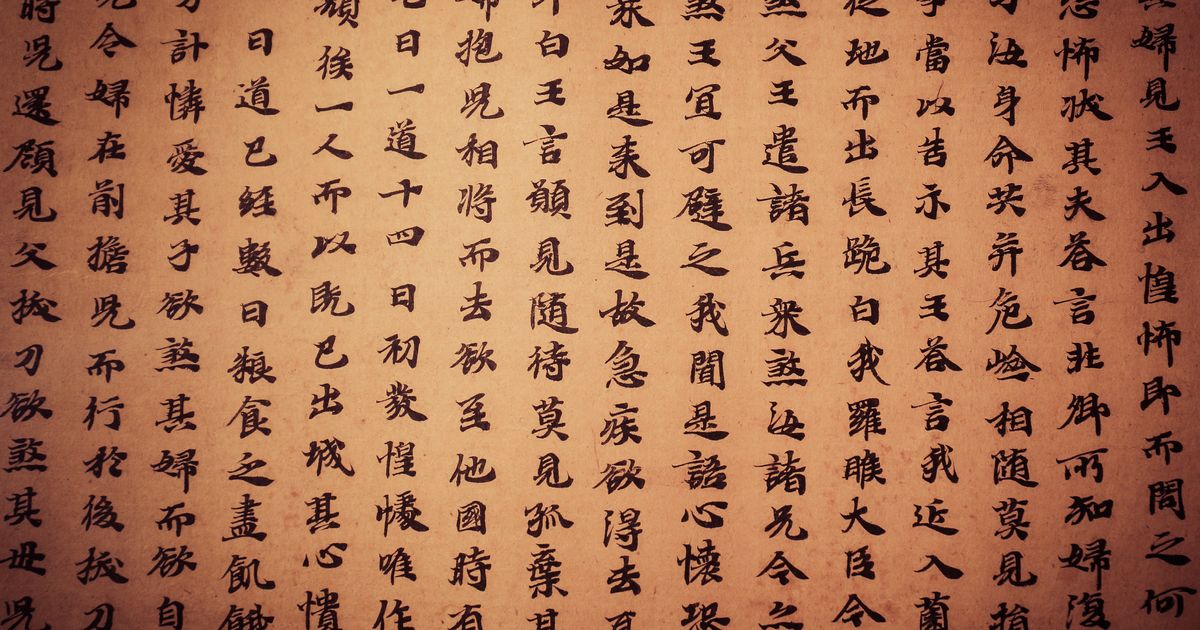 婦見王入出惶怖即而問之何
怖状其夫荅言非卿所知婦復
汝身命共并危嶮相随莫見捐
事當以告示其王荅言我近入薗
従地而出長跪白我羅睺大臣今
煞父王遣諸兵衆煞汝諸兄今
煞王宜可避之我聞是語心懷恐
衆如是来到是故急疾欲得去
即白王言願見随待莫見孤棄其
婦抱兒相将而去欲至他國時有
日一道十四日初發惶懅唯作
後一人而以既已出城其心憒
日道已經數日粮食乏盡飢餓
方計憐愛其子欲煞其婦而欲自
令婦在前擔兒而行於後拔刀
時兒還顧見父拔刀欲煞其母兒